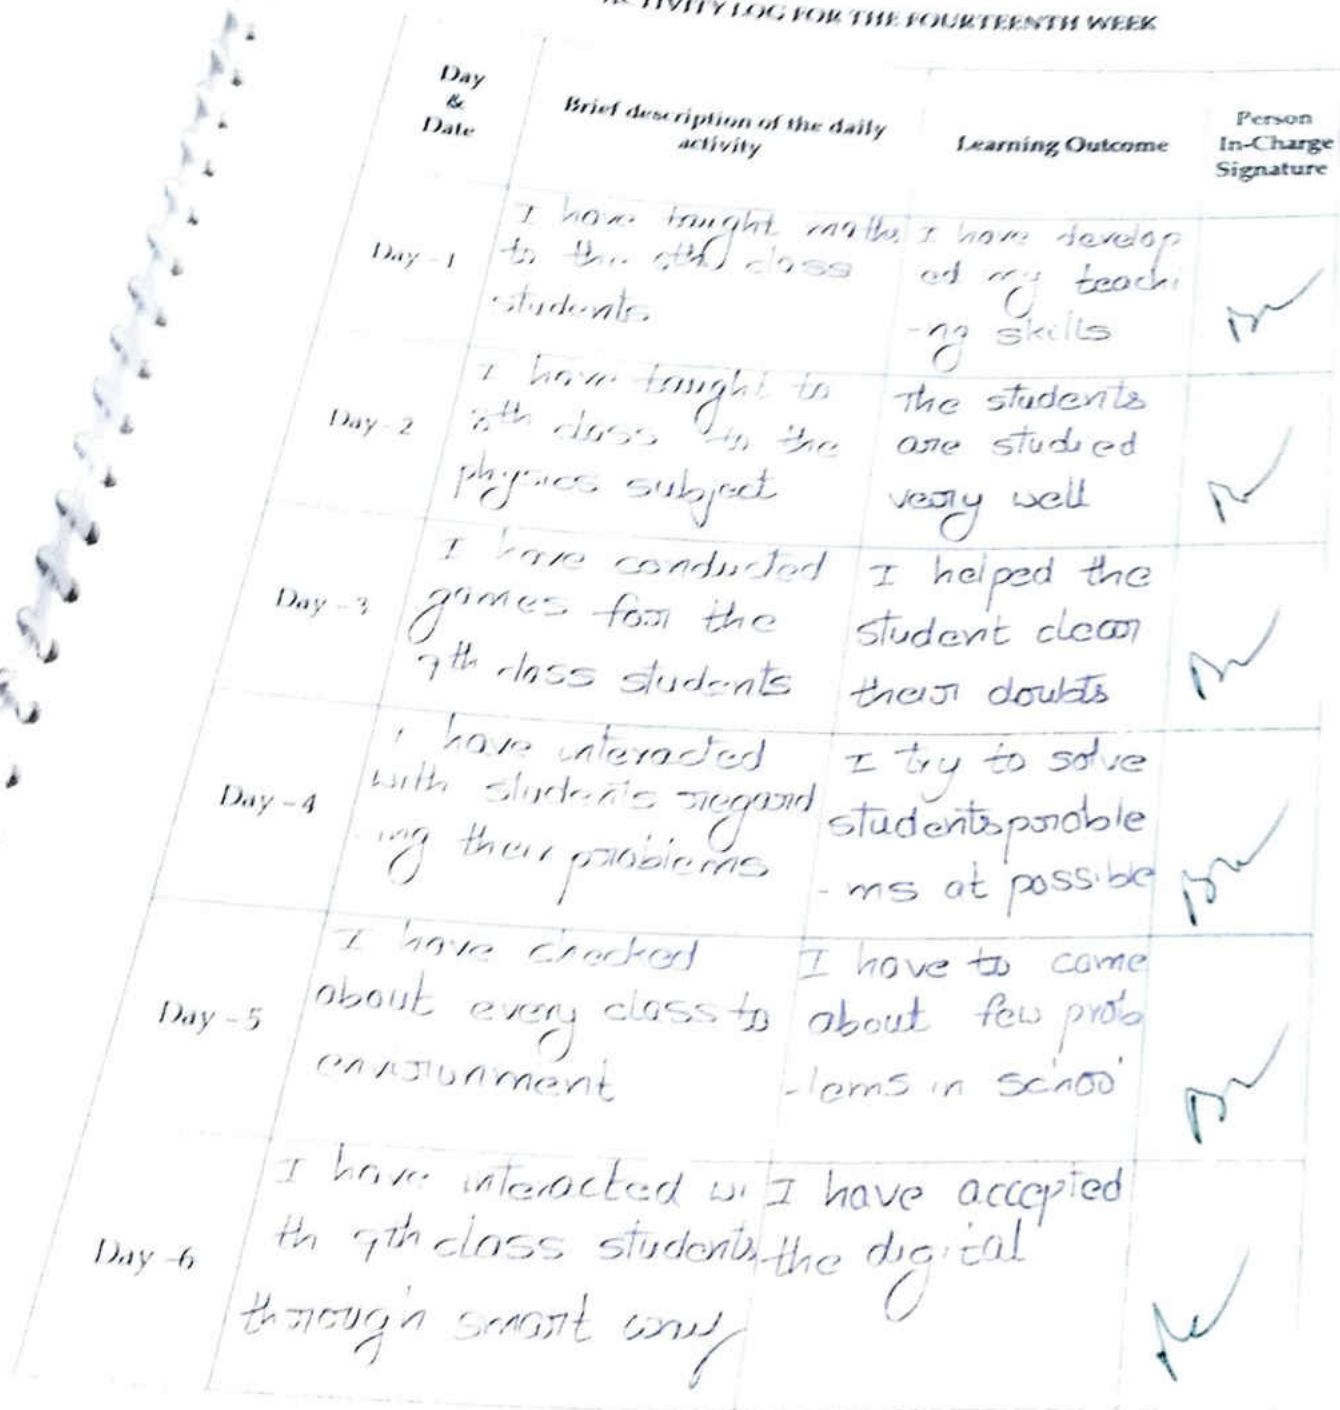 ACTIVITY LOG FOR THE FOURTEENTH WEEK
Day
&
Date
Brief description of the daily
activity
Learning Outcome
Person
In-Charge
Signature
Day - 1
I have taught maths
to the class
students
I have develop
ed my teachi
-ng skills
Day - 2
I have taught to
8th class to the
physics subject
The students
are studied
very well
Day - 3
I have conducted
games for the
7th class students
I helped the
student clear
their doubts
Day - 4
I have interacted
with students regard
-ing their problems
I try to solve
students proble
- ms at possible
Day - 5
I have checked
about every class to
environment
I have to came
about few prob
-lems in school
Day -6
I have interacted wi
th 9th class students
through smart way
I have accepted
the digital